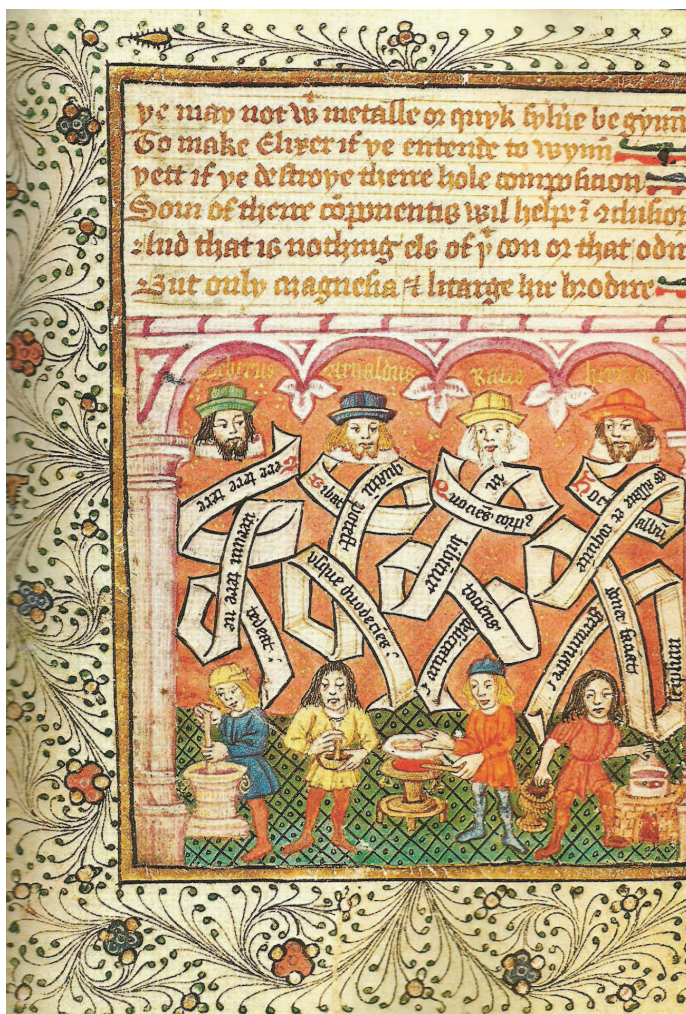 ye may not wͭ metalle or quyk sylũe begynn̄
To make Elixer if ye entende to wynn̄
yett if ye destroye theire hole composicion
Som of theire cōponentis wil helpe ī ꝯclusion
And that is nothing els of yͭ oon or that odir
But only magnesia ⁊ litarge hir brodire
eberus
Arnaldus
Rasis
Tere tere tere
iterum tere ne
tedeat
Bibat
quātū
potest
usque duodecies
Quocies corp⁹
tociens
desiccatur
Hoc
albū
es assan et coquite